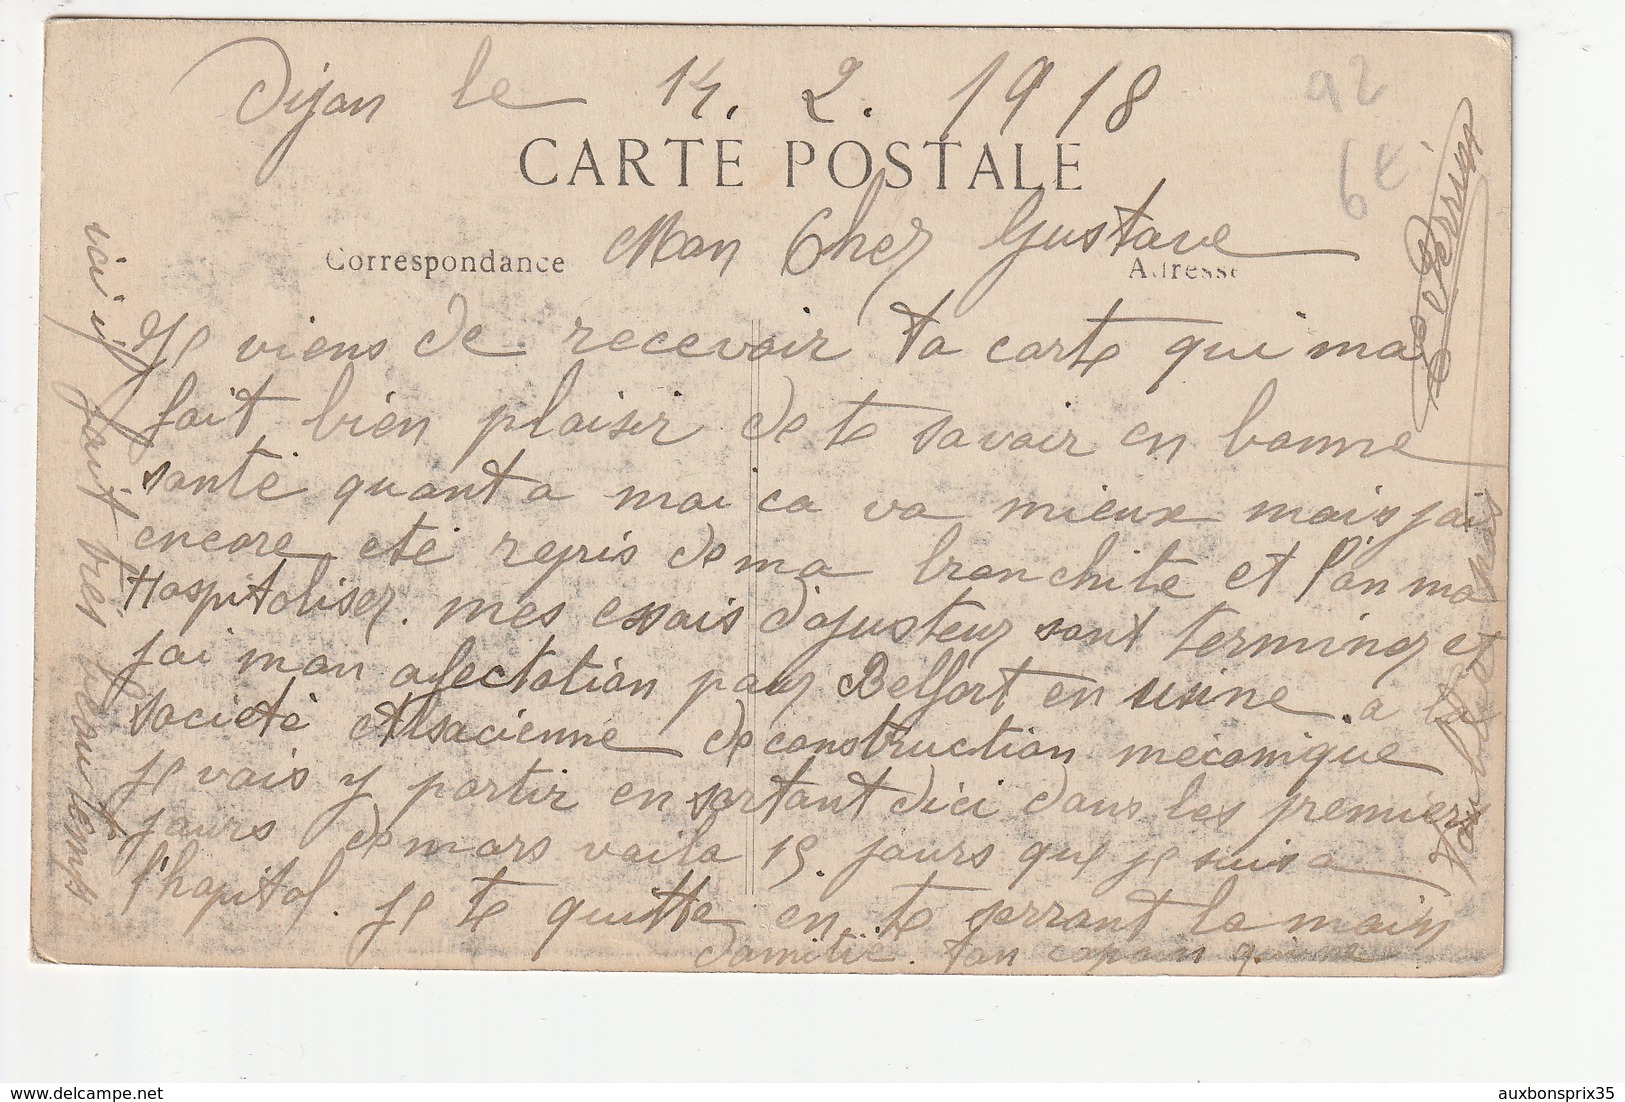 Dijon le 14. 2. 1918
92
6€
CARTE POSTALE
Mon Cher Gustave
Correspondance
Adresse
Je viens de recevoir ta carte qui ma
fait bien plaisir de te savoir en bonne
santé quant a moi ca va mieux mais jai
encore eté repris de ma bronchite et l'on ma
Hospitaliser. mes essais d'ajusteur sont terminer et
jai mon afectation pour Belfort en usine. a la
Societé Alsacienne de construction mécanique
je vais y partir en sortant d'ici dans les premiers
jours de mars voila 15. jours que je suis a
l'hopital. je te quitte en te serrant la main
d'amitié. ton copain qui ne
t'oublie pas
Persin
ici il fait tres beau temps
auxbonsprix35